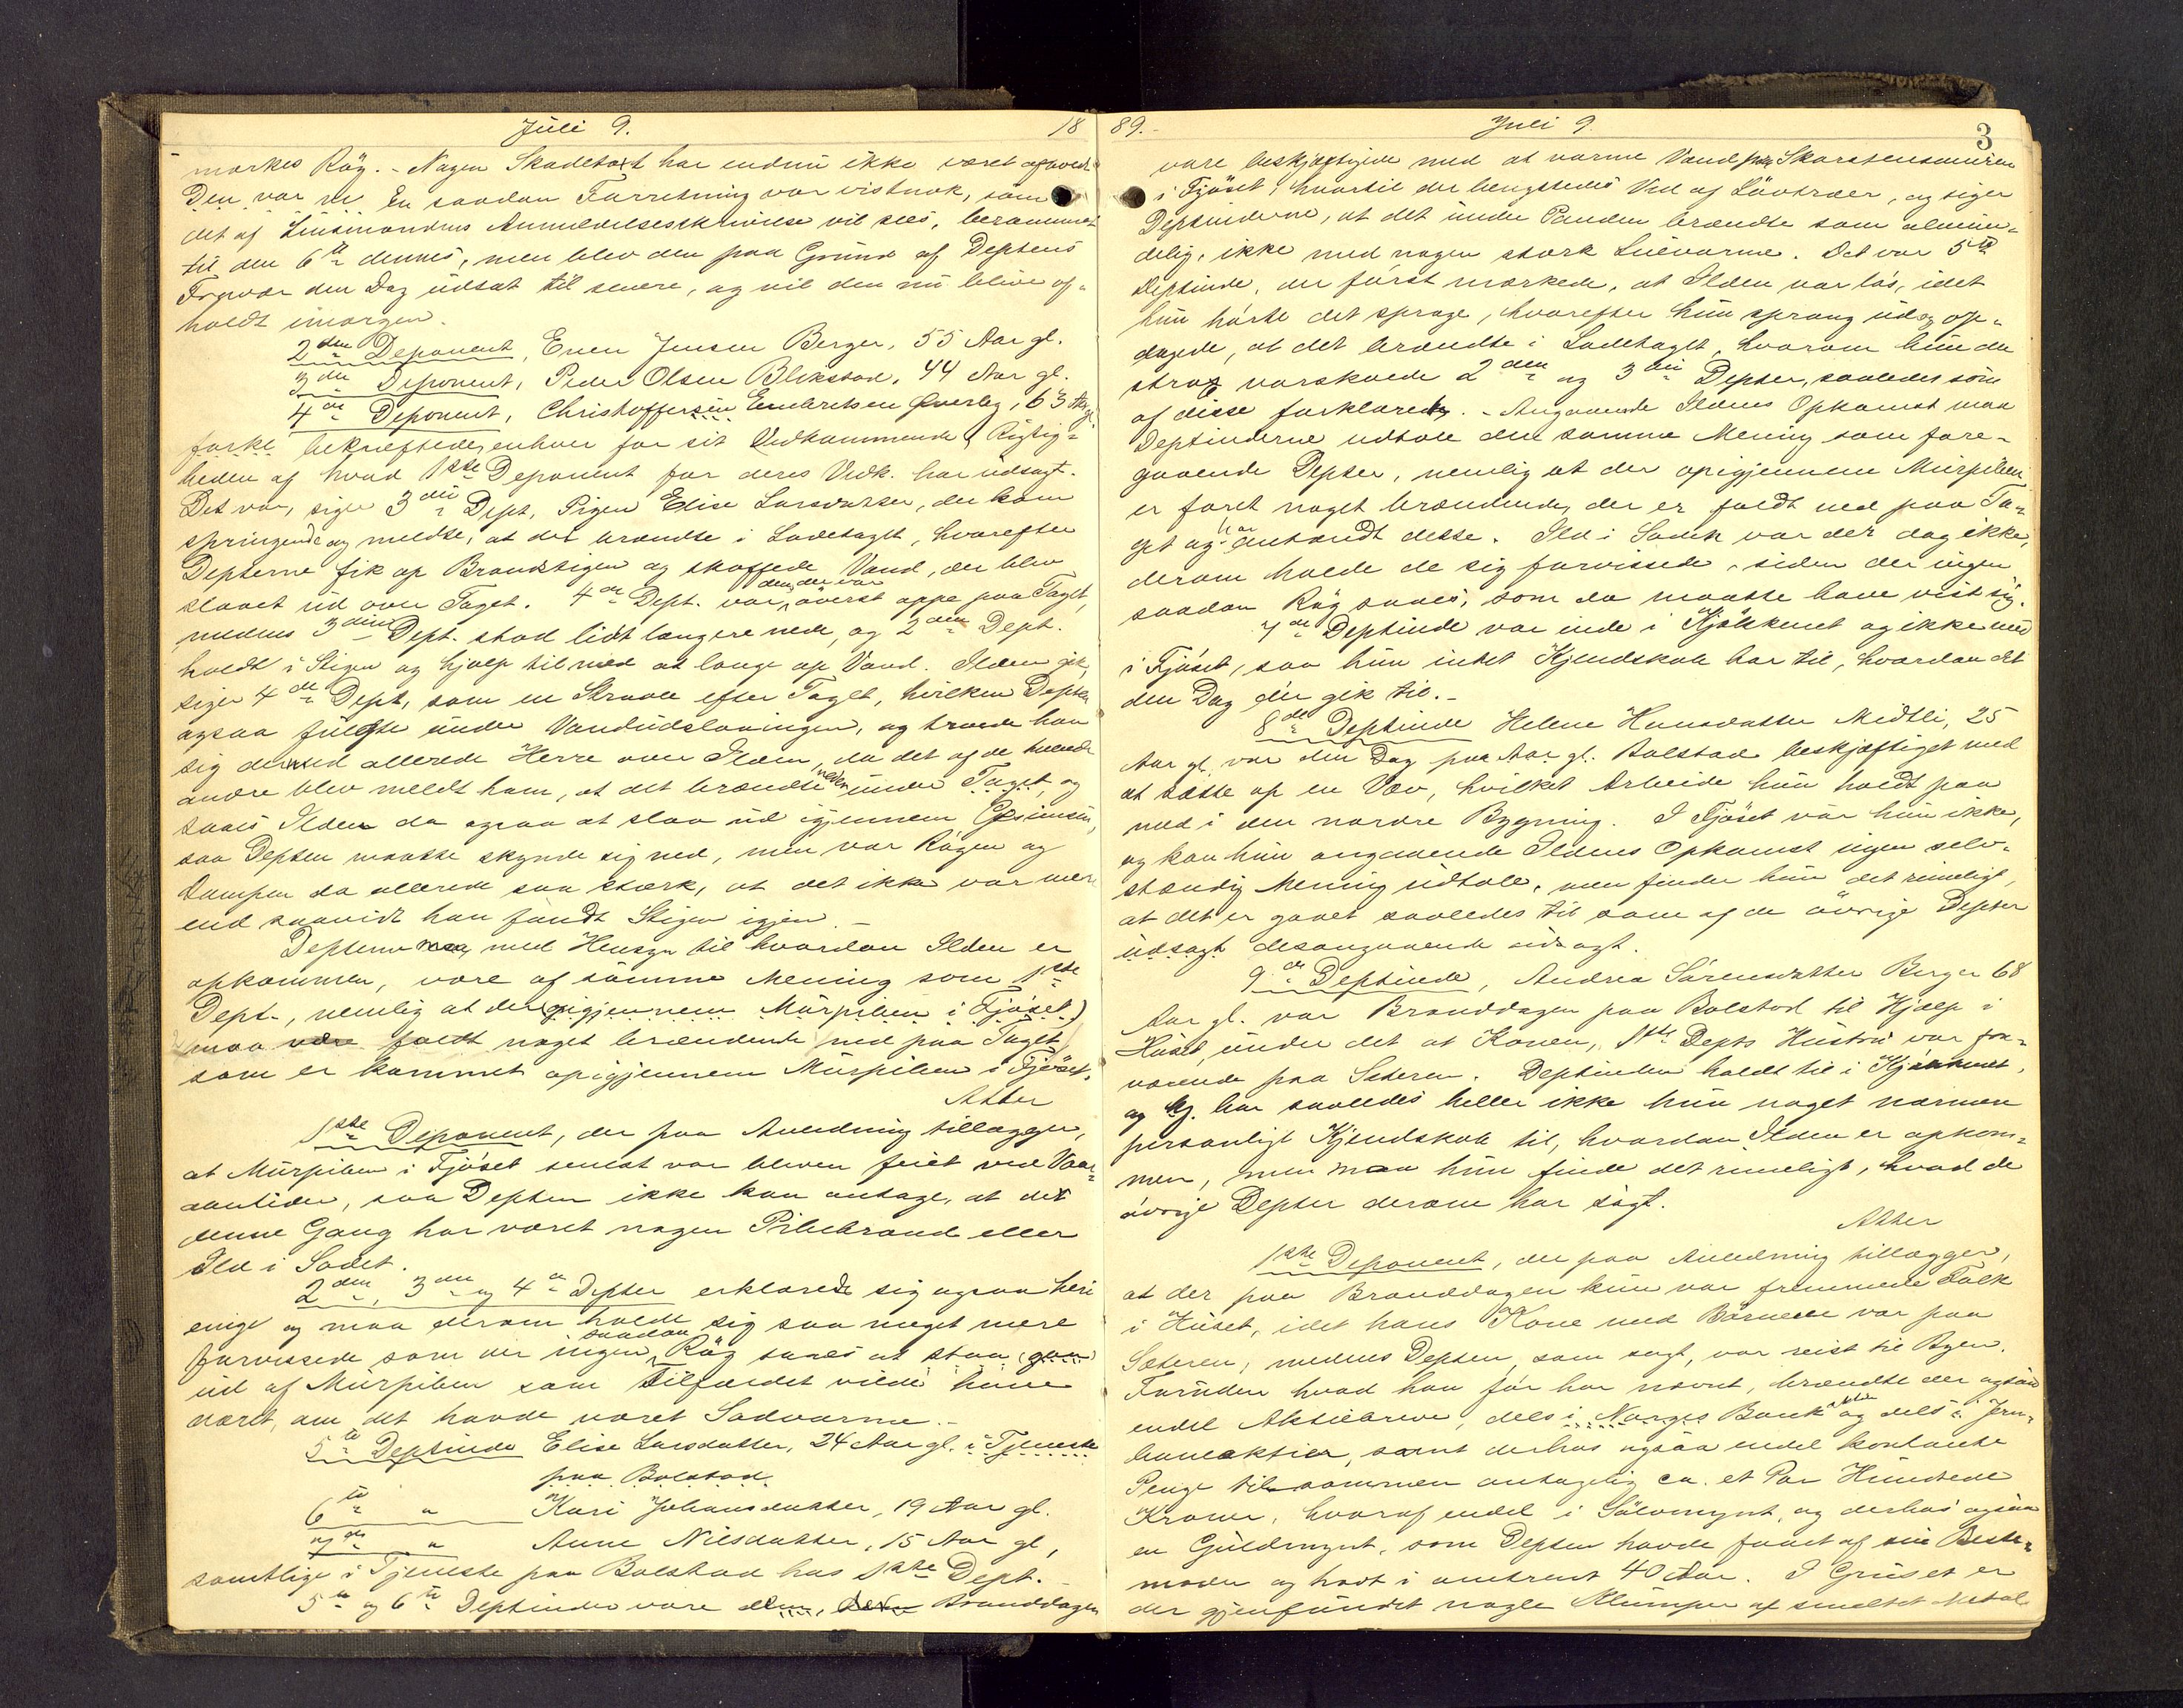 Juli 9. 18
mærkes Røg. - Nogen Skadetaxt har endnu ikke været afhold
Den var en saadan Forretning var vistnok, som
det af Lensmandens Anmeldelsesskrivelse vil sees, berammet
til den 6te dennes, men blev den paa Grund af Deptens
Fravær den Dag udsat til senere, og vil den nu blive af-
holdt imorgen.
2den Deponent, Even Jensen Berger, 55 Aar gl.
3die Deponent, Peder Olsen Blikstad, 44 Aar gl.
4de Deponent, Christoffersen Embretsen Øverby, 63 Aar gl.
forkl. bekræftede enhver for sit Vedkommende Rigtig-
heden af hvad 1ste Deponent for deres Vedk. har udsagt.
Det var, siger 3die Dept, Pigen Elise Larsdatter, der kom
springende og meldte, at det brændte i Ladetaget, hvorefter
Depterne fik op Brandstigen og skaffede Vand, der blev
slaaet ud over Taget. 4de Dept. var den, der var øverst oppe paa Taget,
medens 3die Dept. stod lidt længere nede, og 2den Dept.
holdt i Stigen og hjalp til med at lange op Vand. Ilden gik,
siger 4de Dept, som en Straale efter Taget, hvilken Depten
ogsaa fulgte under Vandudslaaingen, og troede han
sig dermed allerede Herre over Ilden, da det af de hernede
andre blev meldt ham, at det brændte neden under Taget, og
saaes Ilden da ogsaa at slaa ud igjennem Gesimsen,
saa Depten maatte skynde sig ned, men var Røgen og
Dampen da allerede saa stærk, at det ikke var mere
end saavidt han fandt Stigen igjen. -
Depterne med Hensyn til hvordan Ilden er
opkommen, vare af samme Mening som 1ste
Dept., nemlig at der (opigjennem Murpiben i Fjøset)
maa være faldt noget brændende ned paa Taget
som er kommet opigjennem Murpiben i Fjøset.
Atter
1ste Deponent, der paa Anledning tillægger,
at Murpiben i Fjøset senest var bleven feiet ved Vaar-
aantider, saa Depten ikke kan antage, at det
denne Gang har været nogen Pibebrand eller
Ild i Sodet.
2den, 3die og 4de Depter erklærede sig ogsaa heri
enige og maa derom holde sig saa meget mere
forvissede som der ingen saadan Røg saaes at staa (gaa)
ud af Murpiben som Tilfældet vilde have
været, om det havde været Sodvarme. -
5te Deptinde Elise Larsdatter, 24 Aar gl. i Tjeneste
paa Bolstad.
6te " Kari Johansdatter, 19 Aar gl.
og 7de " Anne Nilsdatter, 15 Aar gl,
samtlige i Tjeneste paa Bolstad hos 1ste Dept. -
5te og 6te Deptinder vare Branddagen
89. - Juli 9. 3
vare beskjæftigede med at varme Vand paa Skorstensmuren
i Fjøset, hvortil der benyttedes Ved af Løvtræer, og siger
Deptinderne, at det under Panden brændte som alminde-
delig, ikke med nogen stærk Luevarme. Det var 5te
Deptinde, der først mærkede, at Ilden var løs, idet
hun hørte det sprage, hvorefter hun sprang ud og op-
dagede, at det brændte i Ladetaget, hvorom hun da
strax varskoede 2den og 3die Depter, saaledes som
af disse forklaret. - Angaaende Ildens Opkomst maa
Deptinderne udtale den samme Mening som fore-
gaaende Depter, nemlig at der opigjennem Murpiben
er faret noget brændende, der er faldt ned paa Ta-
get og har antændt dette. Ild i Soden var der dog ikke,
derom holde de sig forvissede, siden der ingen
saadan Røg saaes, som da maatte have vist sig.
7de Deptinde var inde i Kjøkkenet og ikke med
i Fjøset, saa hun intet Kjendskab har til, hvordan det
den Dag der gik til. -
8de Deptinde Helene Hansdatter Midtli, 25
Aar gl. var den Dag paa Bolstad beskjæftiget med
at sætte op en Væv, hvilket Arbeide hun holdt paa
med i den nordre Bygning. I Fjøset var hun ikke,
og kan hun angaaende Ildens Opkomst ingen selv-
stændig Mening udtale, men finder hun det rimeligt,
at det er gaaet saaledes til som af de øvrige Depter
udsagt desangaaende udsagt.
9de Deptinde, Andrea Sørensdatter Berger 68
Aar gl. var Branddagen paa Bolstad til Hjælp i
Huset, under det at Konen, 1ste Depts Hustru var fra-
værende paa Sæteren. Deptinden holdt til i Kjøkkenet,
og har saaledes heller ikke hun noget nærmere
personligt Kjendskab til, hvordan Ilden er opkom-
men, men maa hun finde det rimeligt, hvad de
øvrige Depter derom har sagt.
Atter
1ste Deponent, der paa Anledning tillægger,
at der paa Branddagen kun var fremmede Folk
i Huset, idet hans Kone med Børnene var paa
Sæteren, medens Depten, som sagt, var reist til Byen.
Foruden hvad han før har nævnt, brændte der ogsaa
endel Aktiebreve, dels i Norges Bank og dels i Jern-
baneaktier, samt derhos ogsaa endel kontante
Penge tilsammen antagelig ca. et Par Hundrede
Kroner, hvoraf endel i Sølvmynt, og derhos ogsaa
en Guldmynt, som Depten havde faaet af sin Beste-
moder og havt i omtrent 40 Aar. I Gruset er
der gjenfundet nogle Klumper af smeltet Metal